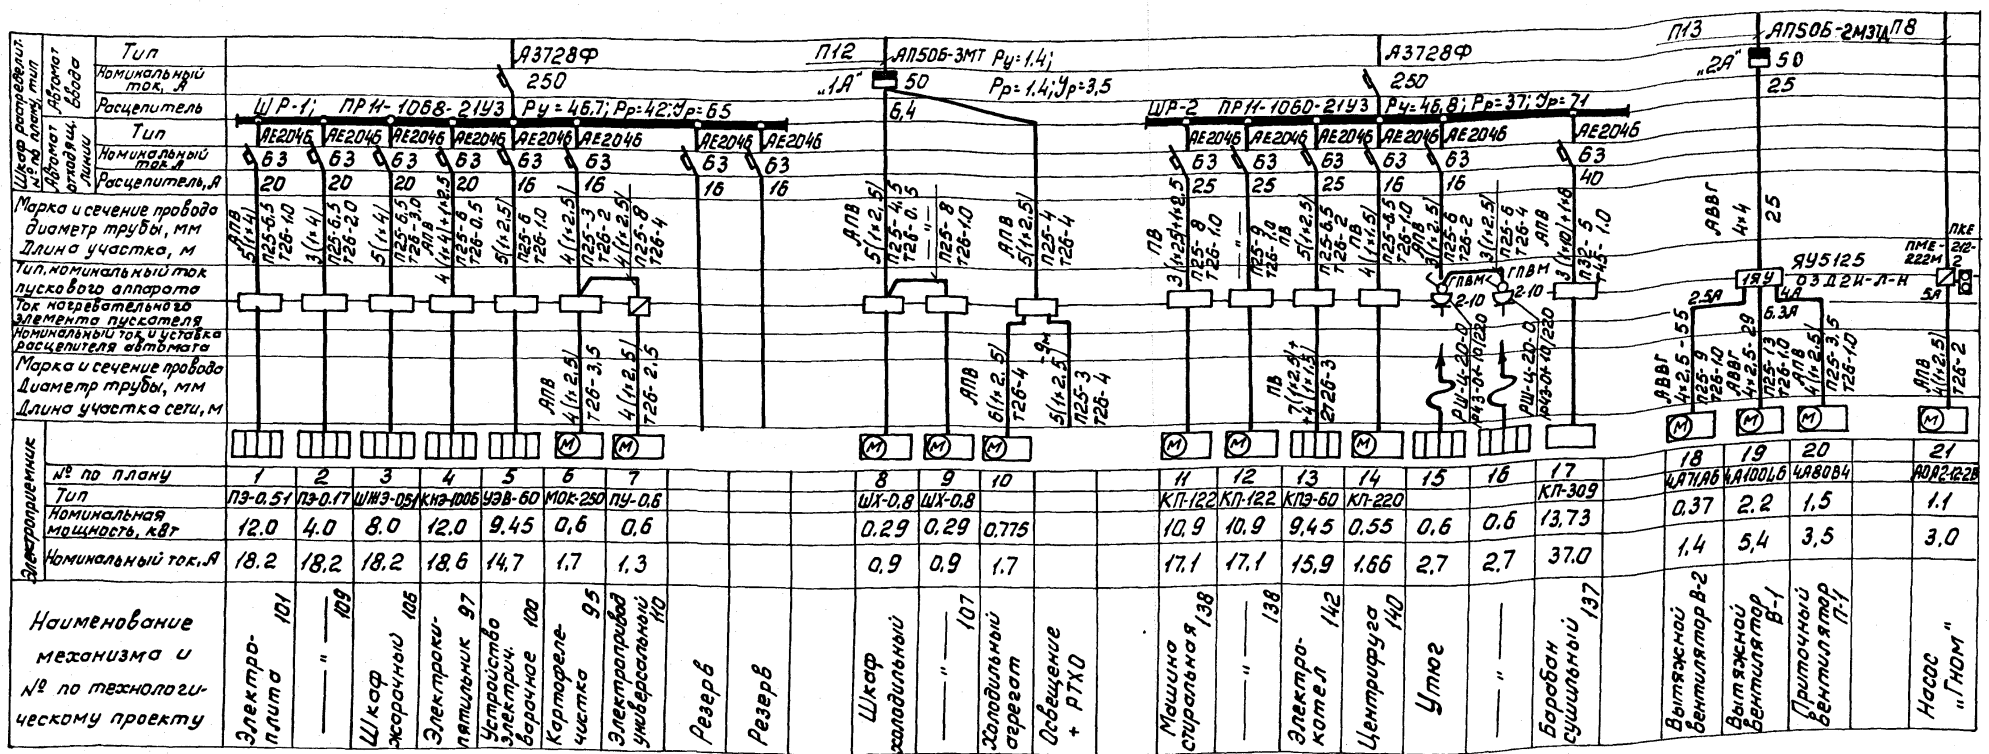 Шкаф распределит. № по плану, тип
Автомат ввода
Тип
Номинальный ток, А
Расцепитель
Автомат отходящ. линии
Тип
Номинальный ток А
Расцепитель, А
Марка и сечение провода
диаметр трубы, мм
Длина участка, м
Тип, номинальный ток
пускового аппарата
Ток нагревательного
элемента пускателя
Номинальный ток и уставка
расцепителя автомата
Марка и сечение провода
Диаметр трубы, мм
Длина участка сети, м
А3728Ф
250
ШР-1; ПР11-1068-21У3 Ру=46.7; Рр=42; Jр=65
АЕ2046 АЕ2046 АЕ2046 АЕ2046 АЕ2046 АЕ2046 АЕ2046 АЕ2046
63 63 63 63 63 63 63 63
20 20 20 20 16 16 16 16
АПВ 5(1×4) П25-6.5 Т26-1.0
3(1×4) П25-6.5 Т26-2.0
5(1×4) П25-6.5 Т26-3.0
АПВ 4(1×4)+1×2.5 П25-6 Т26-0.5
5(1×2,5) П25-6 Т26-1.0
4(1×2,5) П25-3 Т26-2
4(1×2,5) П25-8 Т26-4
АПВ 4(1×2,5) Т26-3,5
4(1×2,5) Т26-2.5
П12 АП50Б-3МТ Ру=1.4;
„1А" 50 Рр=1.4; Jр=3,5
6,4
АПВ 5(1×2,5) П25-4.5 Т26-0.5
—"— П25-8 Т26-1.0
АПВ 5(1×2,5) П25-4 Т26-4
АПВ 6(1×2,5) Т26-4
-9м
5(1×2,5) П25-3 Т26-4
А3728Ф
250
ШР-2 ПР11-1060-21У3 Ру=46,8; Рр=37; Jр=71
АЕ2046 АЕ2046 АЕ2046 АЕ2046 АЕ2046 АЕ2046
63 63 63 63 63 63
25 25 25 16 16 40
ПВ 3(1×2.5)+1×2.5 П25-8 Т26-1.0
—"— П25-9 Т26-1.0
ПВ 5(1×2,5) П25-6.5 Т26-2
ПВ 4(1×2,5) П25-6.5 Т26-1.0
АПВ 3(1×2,5) П25-6 Т26-2
3(1×2.5) П25-6 Т26-4
АПВ 3(1×10)+1×6 П32-5 Т45-1.0
ГПВМ ГПВМ
2-10 2-10
ПВ 7(1×2.5)+ +4(1×1,5) 2Т26-3
РШ-Ц-20-0 У43-01-10/220
РШ-Ц-20-0 У43-01-10/220
П13 АП50Б-2МЗТД П8
„2А" 50
25
АВВГ 4×4 25
1ЯУ ЯУ5125 03Д2И-Л-Н
2.5А 6.3А 4А
АВВГ 4×2,5-55 П25-9 Т26-1.0
АВВГ 4×2,5-29 П25-13 Т26-1.0
АПВ 4(1×2.5) П25-3,5 Т26-1.0
ПМЕ-222М
ПКЕ 212-2
5А
АПВ 4(1×2,5) Т26-2
М М М М М М М М М М М М
Электроприемник
№ по плану 1 2 3 4 5 6 7 8 9 10 11 12 13 14 15 16 17 18 19 20 21
Тип ПЭ-0.51 ПЭ-0.17 ШЖЭ-051 КНЭ-100Б УЭВ-60 МОК-250 ПУ-0,6 ШХ-0,8 ШХ-0.8 КП-122 КП-122 КПЭ-60 КП-220 КП-309 4А71А6 4А100L6 4А80В4 АОА2-12-2В
Номинальная мощность, кВт 12.0 4.0 8.0 12.0 9.45 0,6 0,6 0.29 0.29 0.775 10,9 10,9 9,45 0,55 0,6 0.6 13,73 0,37 2.2 1,5 1.1
Номинальный ток, А 18.2 18,2 18.2 18,6 14,7 1.7 1,3 0,9 0.9 1.7 17.1 17.1 15.9 1.66 2,7 2.7 37.0 1.4 5,4 3,5 3,0
Наименование
механизма и
№ по технологи-
ческому проекту
Электро-плита 101
—"— 109
Шкаф жарочный 106
Электроки-пятильник 97
Устройство электрич. варочное 100
Картофеле-чистка 95
Электропривод универсальный 110
Резерв
Резерв
Шкаф холодильный
—"— 107
Холодильный агрегат
Освещение + РТХО
Машина стиральная 138
—"— 138
Электро-котел 142
Центрифуга 140
Утюг
—"—
Барабан сушильный 137
Вытяжной вентилятор В-2
Вытяжной вентилятор В-1
Приточный вентилятор П-1
Насос „Гном"